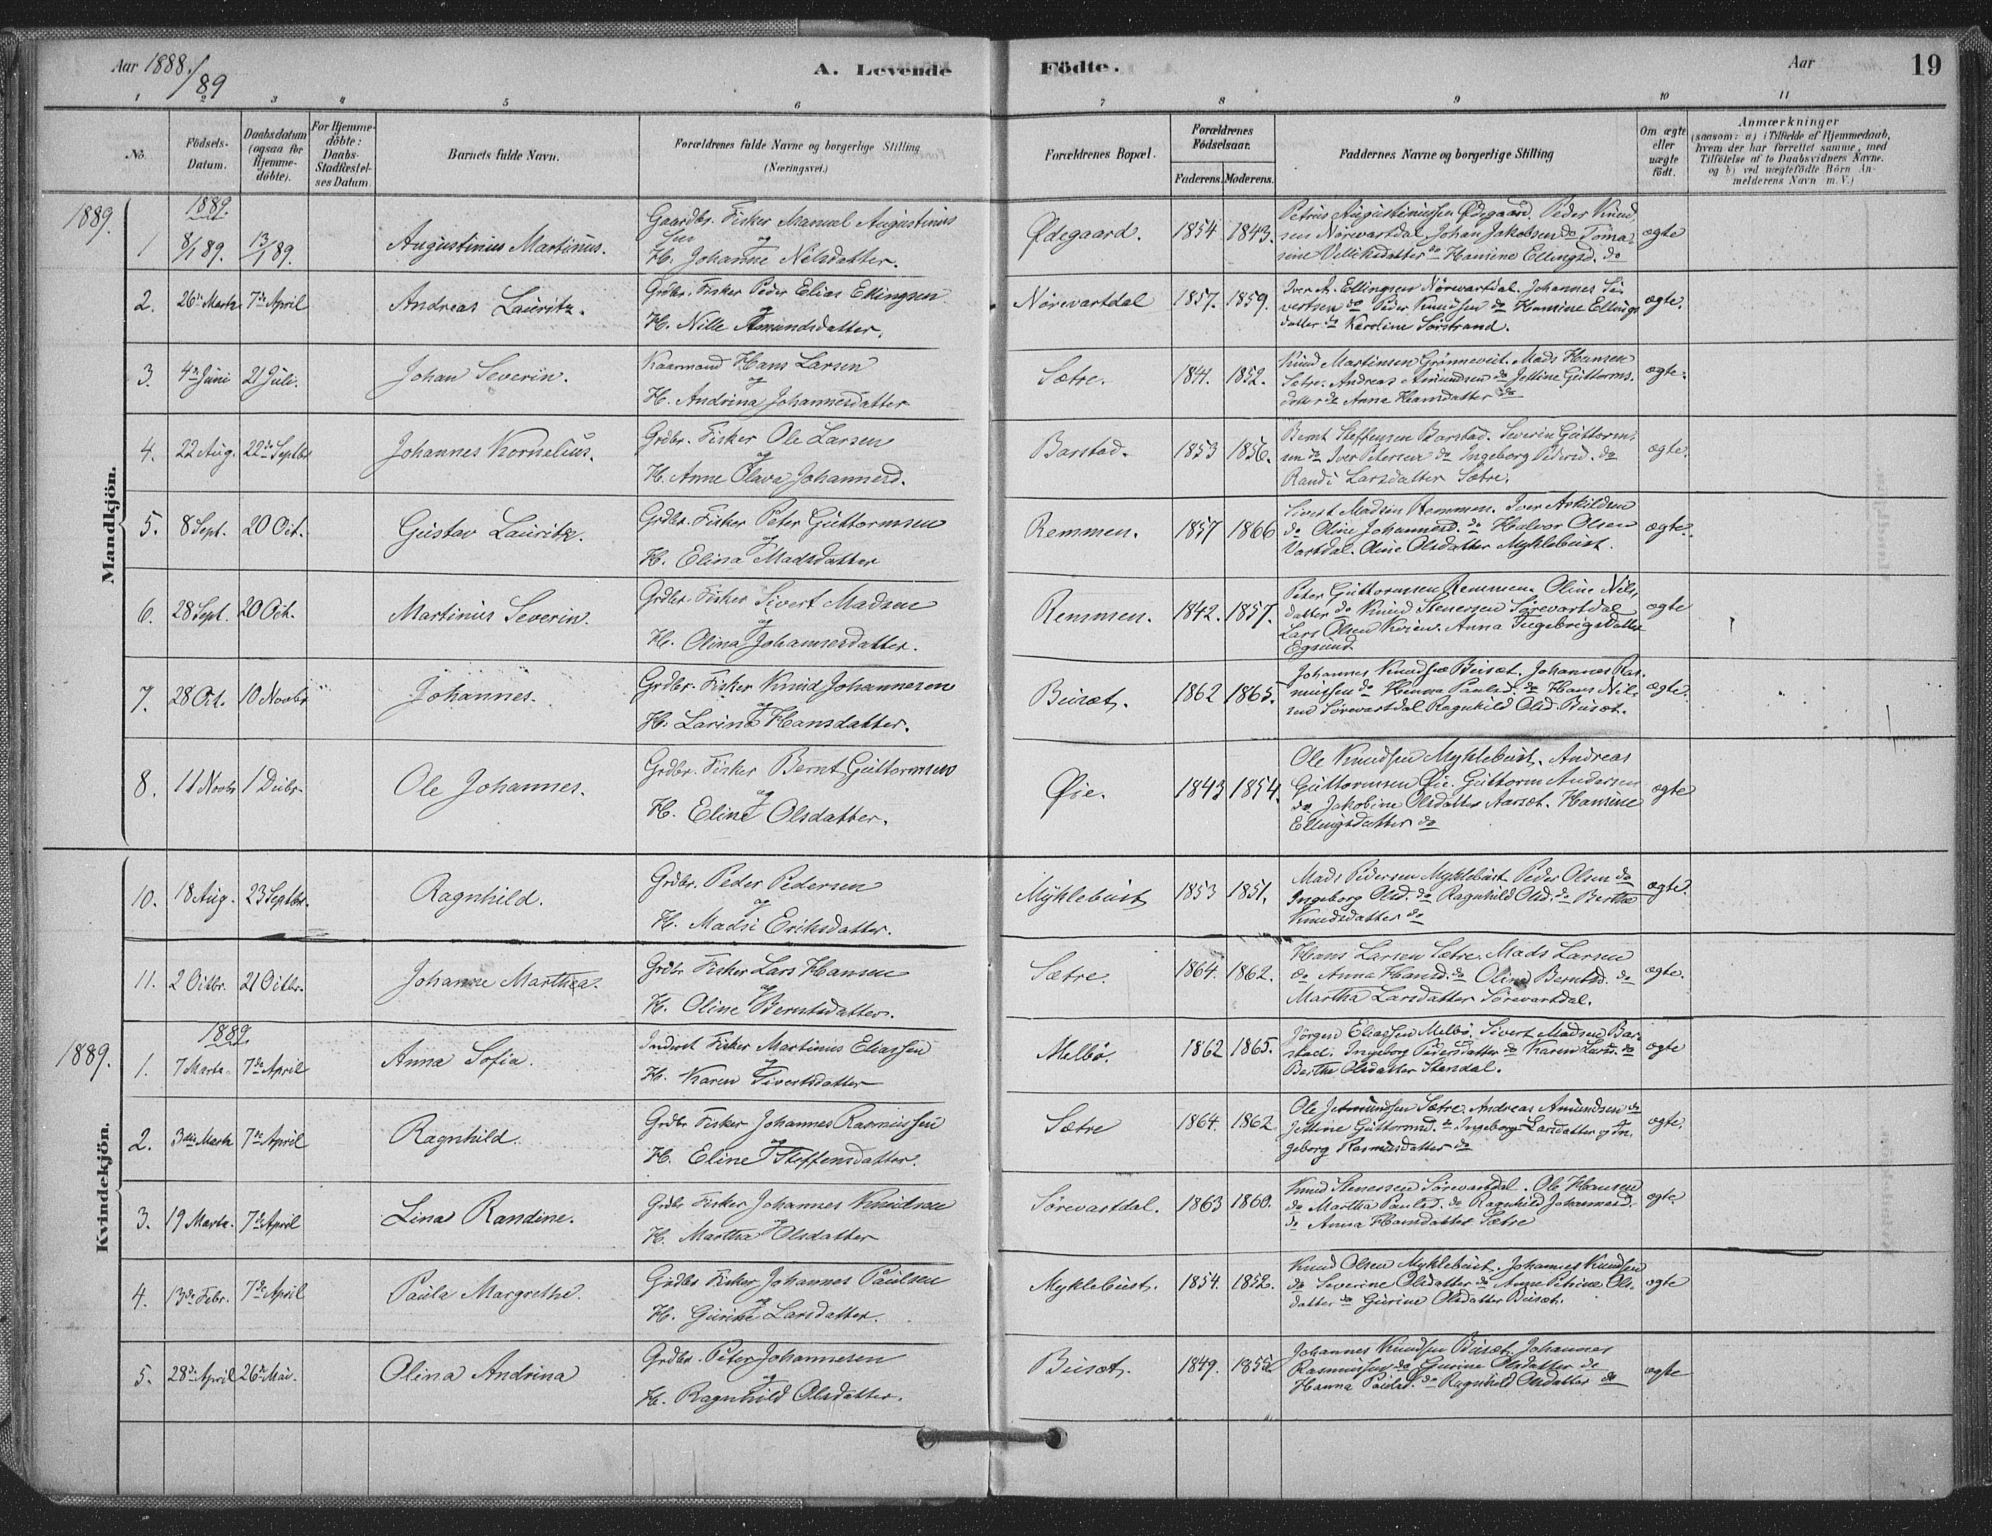 Aar 1888./89
A. Levende Födte.
Aar
19
1 2 3 4 5 6 7 8 9 10 11
No.
Födsels-Datum.
Daabsdatum (ogsaa for Hjemme-döbte).
For Hjemme-döbte: Daabs-Stadfæstel-ses Datum
Barnets fulde Navn.
Forældrenes fulde Navne og borgerlige Stilling (Næringsvei.)
Forældrenes Bopæl.
Forældrenes Födselsaar.
Faderens. Moderens.
Faddernes Navne og borgerlige Stilling
Om ægte eller uægte födt.
Anmærkninger
(saasom: a) i Tilfælde af Hjemmedaab,
hvem der har forrettet samme, med
Tilföielse af to Daabsvidners Navne.
og b) ved uægtefödte Börn An-
melderens Navn m. V.)
Mandkjön.
1889.
1889.
1 8/1 89. 13/1 89. Augustinius Martinus. Gaardbr. Fisker Manuel Augustinius
sen og
H. Johanne Nilsdatter.
Ødegaard. 1854 1843. Petrus Augustiniussen Ødegaard. Peder Knud
sen Nørevartdal Johan Jakobsen do Toma-
sine Velliksdatter do Hansine Ellingsd. do
ægte
2. 26de Marts 7de April Andreas Lauritz. Grdbr. Fisker Peder Elias Ellingsen
og
H. Nille Amundsdatter.
Nørevartdal 1857. 1859. Iver A. Ellingsen Nørevartdal. Johannes Si-
vertsen do Peder Knudsen do Hansine Ellings
datter do Karoline Sørstrand.
ægte.
3. 4de Juni 21 Juli. Johan Severin. Kaarmand Hans Larsen
og
H. Andrina Johannesdatter
Sætre. 1841. 1852. Knud Martinsen Grønneveit. Mads Hansen
Sætre. Andreas Amundsen do Jettine Guttorms.
datter do Anna Hansdatter do
ægte.
4. 22 Aug. 22de Septbr Johannes Kornelius. Grdbr. Fisker Ole Larsen
og
H. Anne Olava Johannesd.
Barstad. 1853 1856. Bernt Steffensen Barstad. Severin Guttorm-
sen do Iver Petersen do Ingeborg Pedersd. do
Randi Larsdatter Sætre.
ægte.
5. 8 Sept. 20 Oct. Gustav Lauritz. Grdbr. Fisker Peter Guttormsen
og
H. Elina Madsdatter
Remmen. 1857 1866 Sivert Madsen Remmen. Iver Askildsen
do Oline Johannesd. do Halvor Olsen
Vartdal. Oline Olsdatter Myklebust.
ægte.
6. 28 Sept. 20 Oct. Martinus Severin. Grdbr. Fisker Sivert Madsen
og
H. Olina Johannesdatter.
Remmen. 1842. 1857. Peter Guttormsen Remmen. Oline Nils,
datter do Knud Stenersen Sørevartdal
Lars Olsen Kvien. Anna Ingebrigtsdatter
Egsund.
ægte
7. 28 Oct. 10 Novbr Johannes. Grdbr. Fisker Knud Johannesen
og
H. Larina Hansdatter.
Busæt. 1862 1865. Johannes Knudsen Busæt. Johannes Ras-
mussen do Hanna Paulsd. do Hans Nil-
sen Sørevartdal Ragnhild Olsd. Busæt.
ægte.
8. 11 Novbr 1 Decbr. Ole Johannes. Grdbr. Fisker Bernt Guttormsen
og
H. Eline Olsdatter.
Øie. 1843 1854. Ole Knudsen Myklebust. Andreas
Guttormsen Øie. Guttorm Andersen
do Jakobine Olsdatter Aarset. Hansine
Ellingsdatter do
ægte
Kvindekjön.
10. 18 Aug. 23 Septbr. Ragnhild. Grdbr. Peder Pedersen
og
H. Madsi Eriksdatter.
Myklebust 1853 1851. Mads Pedersen Myklebust Peder Olsen do
Ingeborg Olsd. do Ragnhild Olsd. do Berthe
Knudsdatter do
ægte.
11. 2 Octbr. 21 Octbr. Johanne Marthea. Grdbr Fisker Lars Hansen
og
H. Oline Berntsdatter.
Sætre. 1864. 1862. Hans Larsen Sætre. Mads Larsen
do Anna Hansd. do Oline Berntsd. do
Martha Larsdatter Sørevartdal.
ægte.
1889.
1889.
1. 7 Marts. 7de April Anna Sofia. Inderst Fisker Martinus Eliassen
og
H. Karen Sivertsdatter
Melbø. 1862 1865. Jörgen Eliassen Melbø. Sivert Madsen Bar-
stad. Ingeborg Pedersdatter do Karen Larsd. do
Berthe Olsdatter Standal.
ægte
2. 3die Marts 7de April Ragnhild. Grdbr Fisker Johannes Rasmussen
og
H. Eline Steffensdatter.
Sætre 1864. 1862 Ole Jetmundsen Sætre. Andreas Amundsen do
Jettine Guttormsd. do Ingeborg Larsdatter og In-
geborg Rasmusdatter do
ægte.
3. 19 Marts. 7de April Lina Randine. Grdbr Fisker Johannes Knudsen
og
H. Martha Olsdatter
Sørevartdal. 1863 1860. Knud Stenersen Sørevartdal. Ole Hansen
do Martha Paulsd. do Ragnhild Johannesd.
do Anna Hansdatter Sætre
ægte
4. 13de Febr. 7de April Paula Margrethe. Grdbr Fisker Johannes Paulsen
og
H. Gurine Larsdatter.
Myklebust. 1854. 1852. Knud Olsen Myklebust. Johannes Knudsen
do Severine Olsdatter do Anne Petrine Ols-
datter do Gurine Olsdatter Busæt.
ægte
5. 28de April 26de Mai. Olina Andrina Grdbr. Peter Johannesen
og
H. Ragnhild Olsdatter.
Busæt. 1849. 1855 Johannes Knudsen Busæt. Johannes
Rasmussen do Gurine Olsdatter do
Hanna Paulsd. do Ragnhild Olsdatter do
ægte